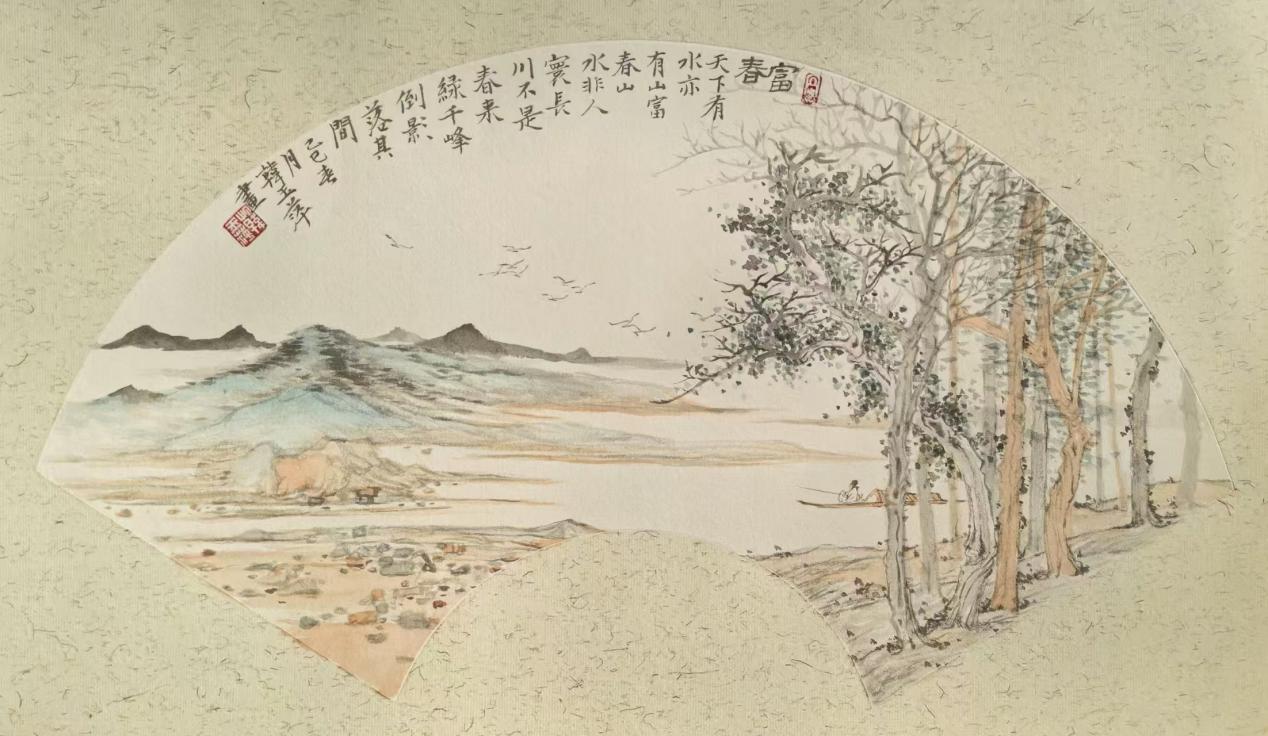 富春
天下有
水亦
有山富
春山
水非人
寰長
川不是
春来
緑千峰
倒影
落其
間
巳
月
韓玉萍
畫